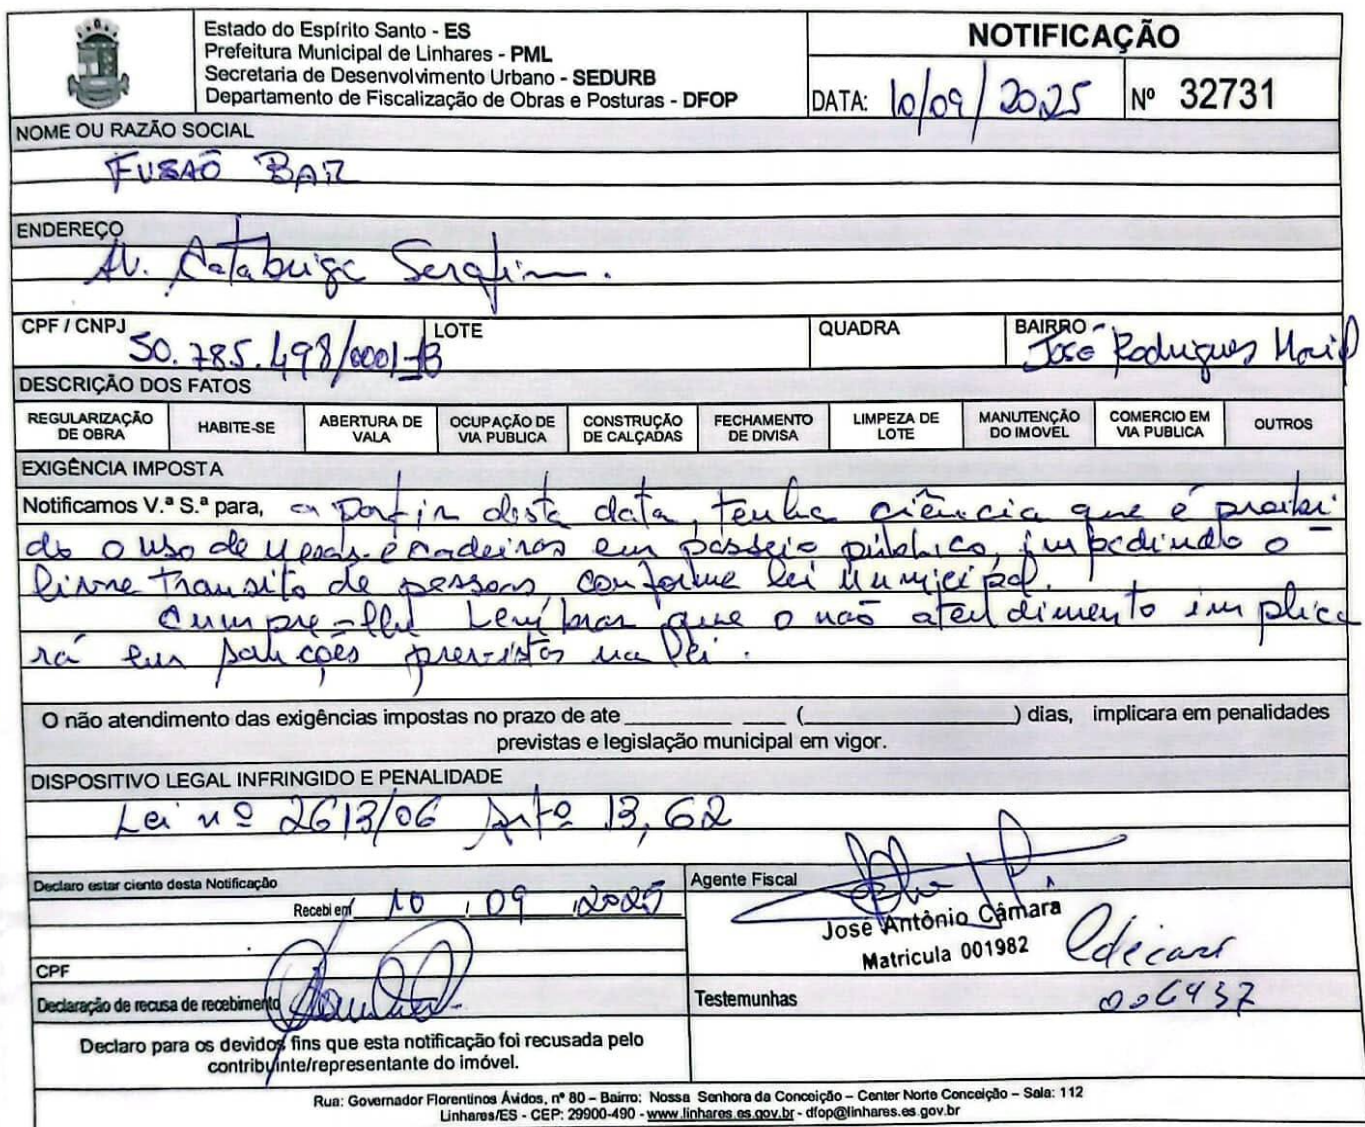 Estado do Espírito Santo - ES
Prefeitura Municipal de Linhares - PML
Secretaria de Desenvolvimento Urbano - SEDURB
Departamento de Fiscalização de Obras e Posturas - DFOP
NOTIFICAÇÃO
DATA: 10/09/2025
Nº 32731
NOME OU RAZÃO SOCIAL
FUSAÕ BAR
ENDEREÇO
AV. Catabriga Serafim.
CPF / CNPJ 50.785.498/0001-13
LOTE
QUADRA
BAIRRO José Rodrigues Maciel
DESCRIÇÃO DOS FATOS
REGULARIZAÇÃO DE OBRA
HABITE-SE
ABERTURA DE VALA
OCUPAÇÃO DE VIA PUBLICA
CONSTRUÇÃO DE CALÇADAS
FECHAMENTO DE DIVISA
LIMPEZA DE LOTE
MANUTENÇÃO DO IMOVEL
COMERCIO EM VIA PUBLICA
OUTROS
EXIGÊNCIA IMPOSTA
Notificamos V.ª S.ª para, a partir desta data, tenha ciência que é proibi
do o uso de mesas e cadeiras em passeio público, impedindo o
livre transito de pessoas, conforme lei municipal.
Cumpre-lhe lembrar que o não atendimento implica
rá em sanções previstas na lei.
O não atendimento das exigências impostas no prazo de ate ______ (______) dias, implicara em penalidades
previstas e legislação municipal em vigor.
DISPOSITIVO LEGAL INFRINGIDO E PENALIDADE
Lei nº 2613/06 Artº 13, 62
Declaro estar ciente desta Notificação
Recebi em 10 / 09 / 2025
CPF
Declaração de recusa de recebimento
Declaro para os devidos fins que esta notificação foi recusada pelo
contribuinte/representante do imóvel.
Agente Fiscal
José Antônio Câmara
Matricula 001982
006937
Testemunhas
Rua: Governador Florentinos Ávidos, nº 80 – Bairro: Nossa Senhora da Conceição – Center Norte Conceição – Sala: 112
Linhares/ES - CEP: 29900-490 - www.linhares.es.gov.br - dfop@linhares.es.gov.br